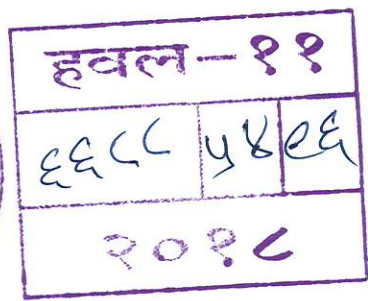 हवल-११
६६८८ ५४ ९६
२०१८